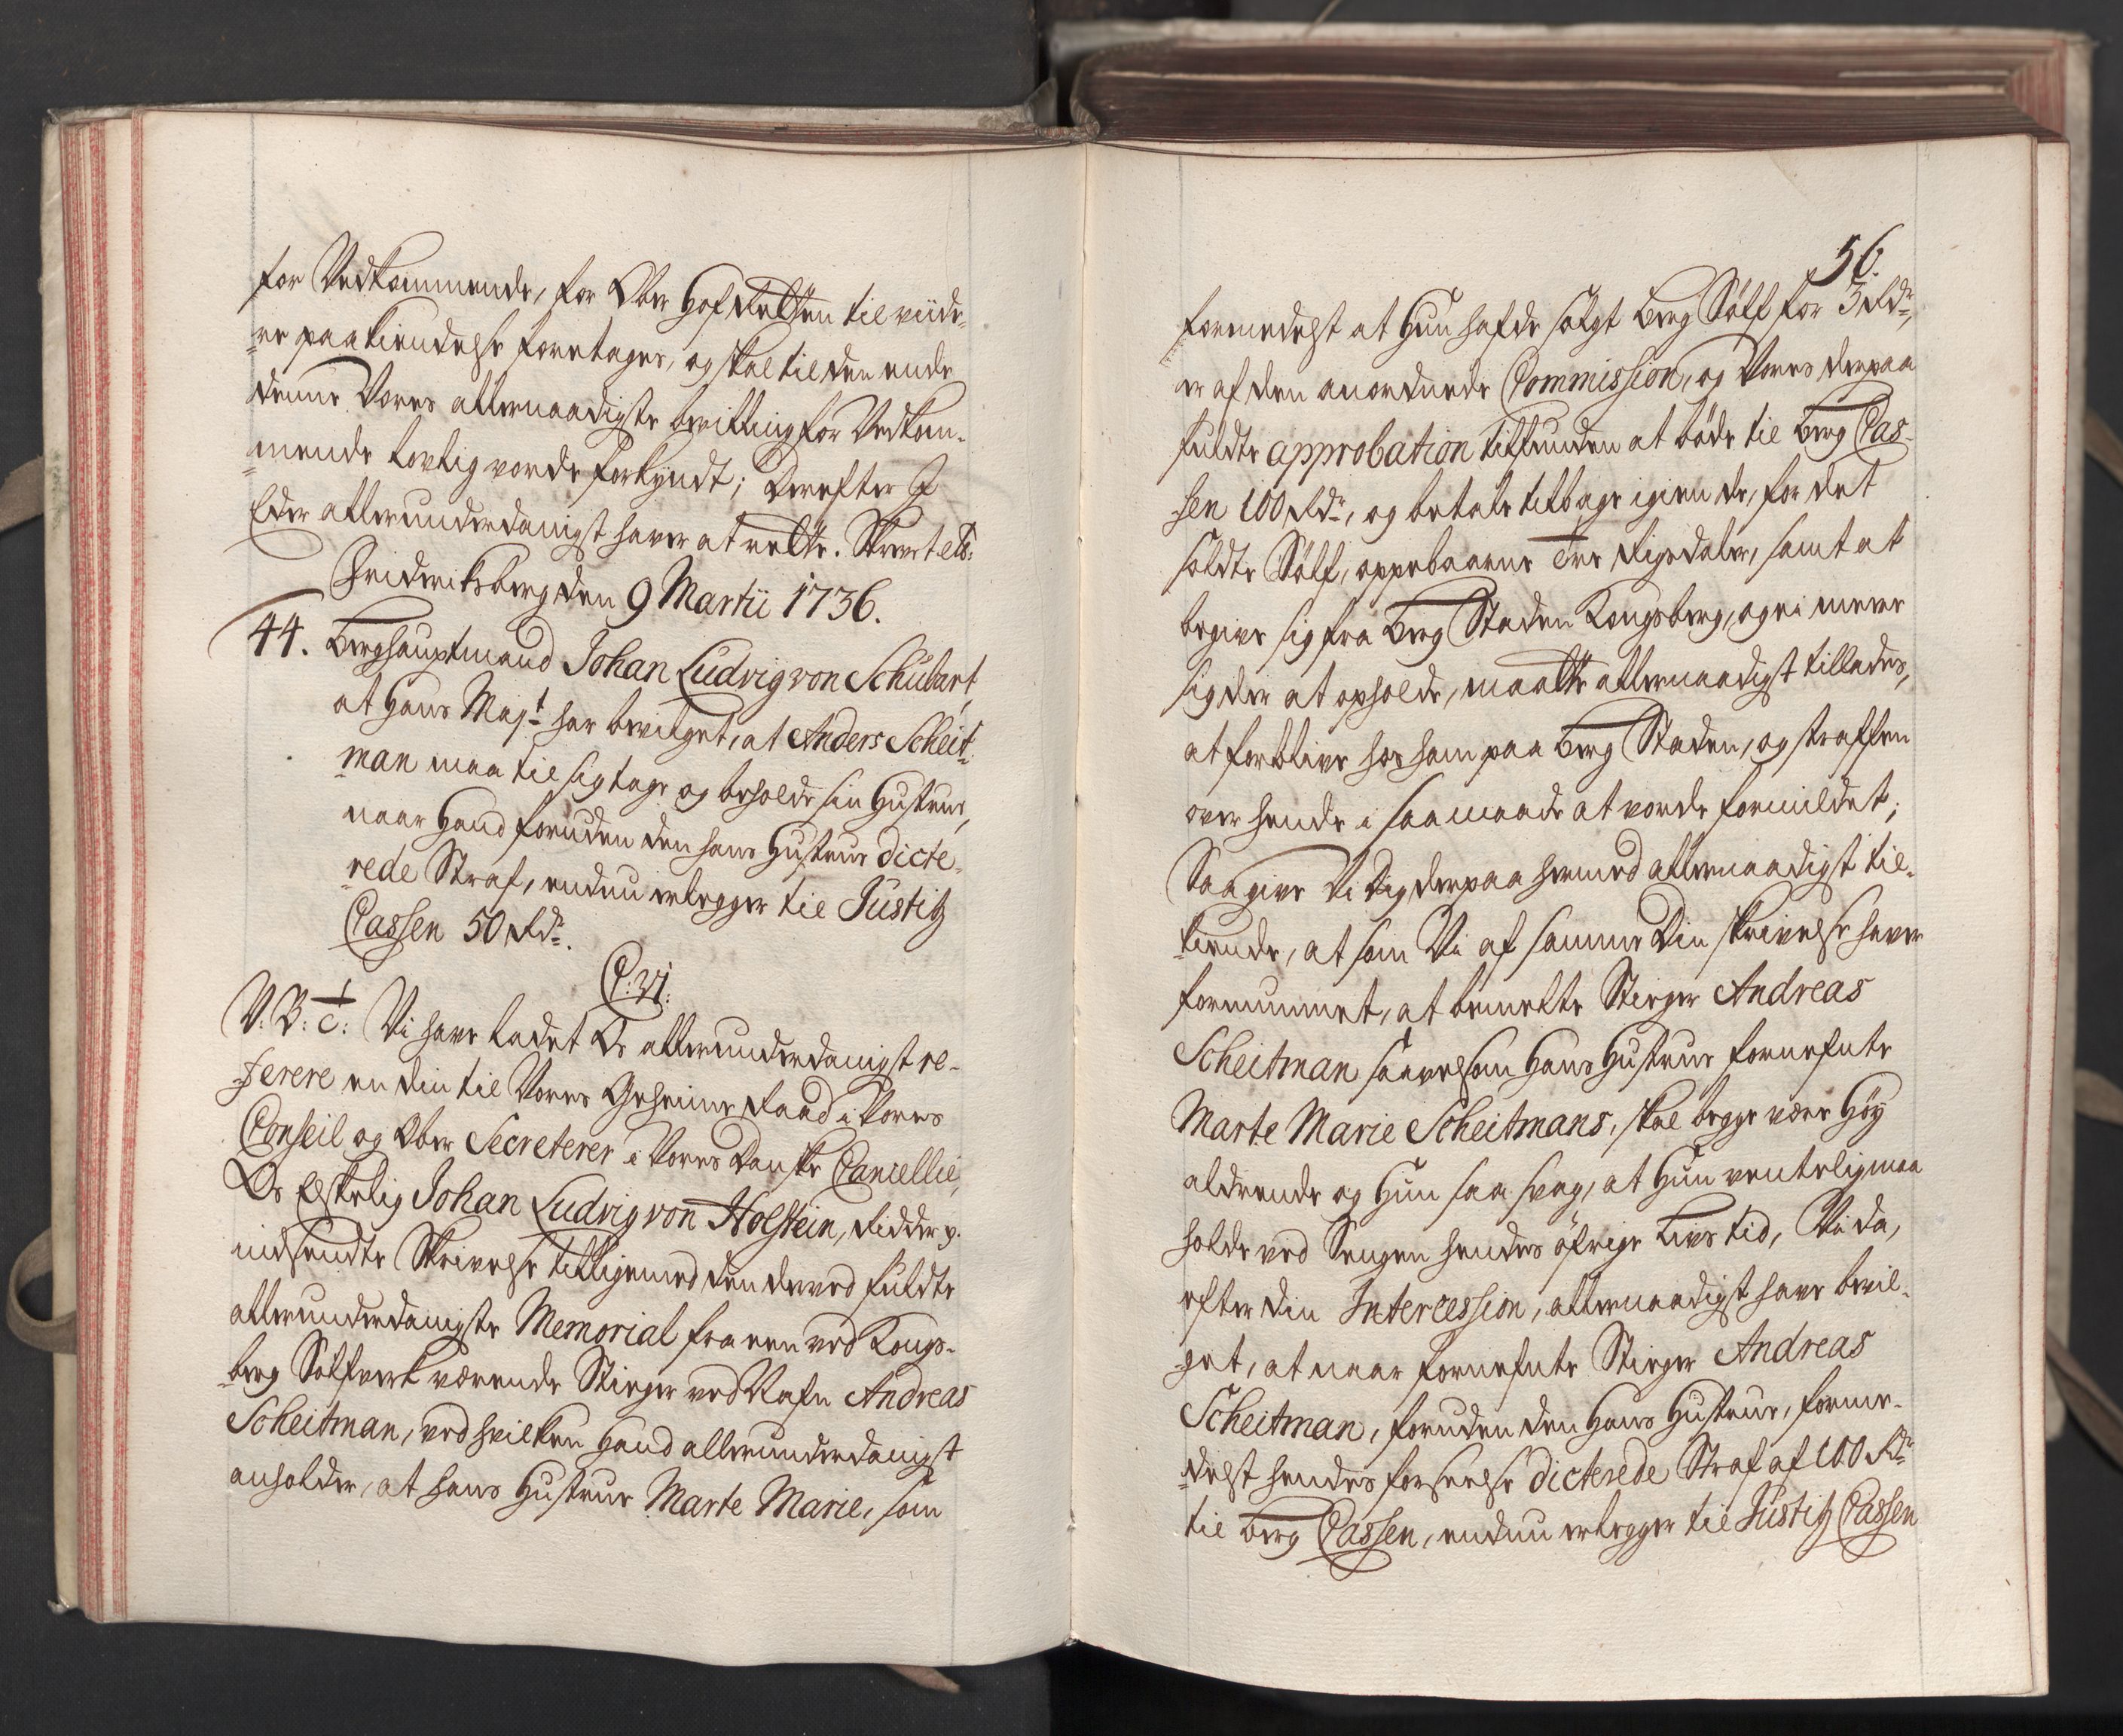 for Vedkommende, for Ober Hof Retten til viide-
re paakiendelse foretages, og skal til den ende
denne Vores allernaadigste bevilling for Vedkom-
mende lovlig vorde forkyndt; Derefter I
Eder allerunderdanigst haver at rette. Skrevet etc:
Friderichsberg den 9 Martii 1736.
44. Berghauptmand Johan Ludvig von Schubart,
at Hans Majt har bevilget, at Anders Scheit-
man maa til sig tage og beholde sin Hustrue,
naar Hand foruden den hans Hustrue dicte-
rede Straf, endnu erlegger til Justitz
Cassen 50 Rdr.
C: VI:
V: B: c: Vi have ladet Os allerunderdanigst re-
ferere en din til Vores Geheime Raad i Vores
Conseil og Ober Secreterer i Vores Danske Cancellie,
Os Elskelig Johan Ludvig von Holstein, Ridder p.
indsendte Skrivelse tilligemed den derved fuldte
allerunderdanigste Memorial fra een ved Kongs-
berg Sølfverk værende Stiger ved Nafn Andreas
Scheitman, ved hvilken Hand allerunderdanigst
anholder, at hans Hustrue Marte Marie, som
56.
formedelst at Hun hafde solgt Berg Sølf for 3 Rdr,
er af den anordnede Commission, og Vores derpaa
fuldte approbation tilfunden at bøde til Berg Cas-
sen 100 Rdr, og betale tilbage igien de, for det
soldte Sølf, oppebaarne Tre Rigsdaler, samt at
begive sig fra Berg Staden Kongsberg, og ei meere
sig der at opholde, maatte allernaadigst tillades,
at forblive hos ham paa Berg Staden, og straffen
over hende i saa maade at vorde formildet;
Saa give Vi Dig derpaa hermed allernaadigst til-
kiende, at som Vi af samme Din skrivelse haver
fornummet, at bemelte Stiger Andreas
Scheitman saavelsom Hans Hustrue fornefnte
Marte Marie Scheitmans, skal begge være Høy
aldrende og Hun saa svag, at Hun ventelig maa
holde ved Sengen hendes øfrige Livs tid, Vi da,
efter din Intercession, allernaadigst have bevil-
get, at naar fornefnte Stiger Andreas
Scheitman, foruden den Hans Hustrue, forme-
delst hendes forseelse dicterede Straf af 100 Rdr
til Berg Cassen, endnu erlegger til Justitz Cassen